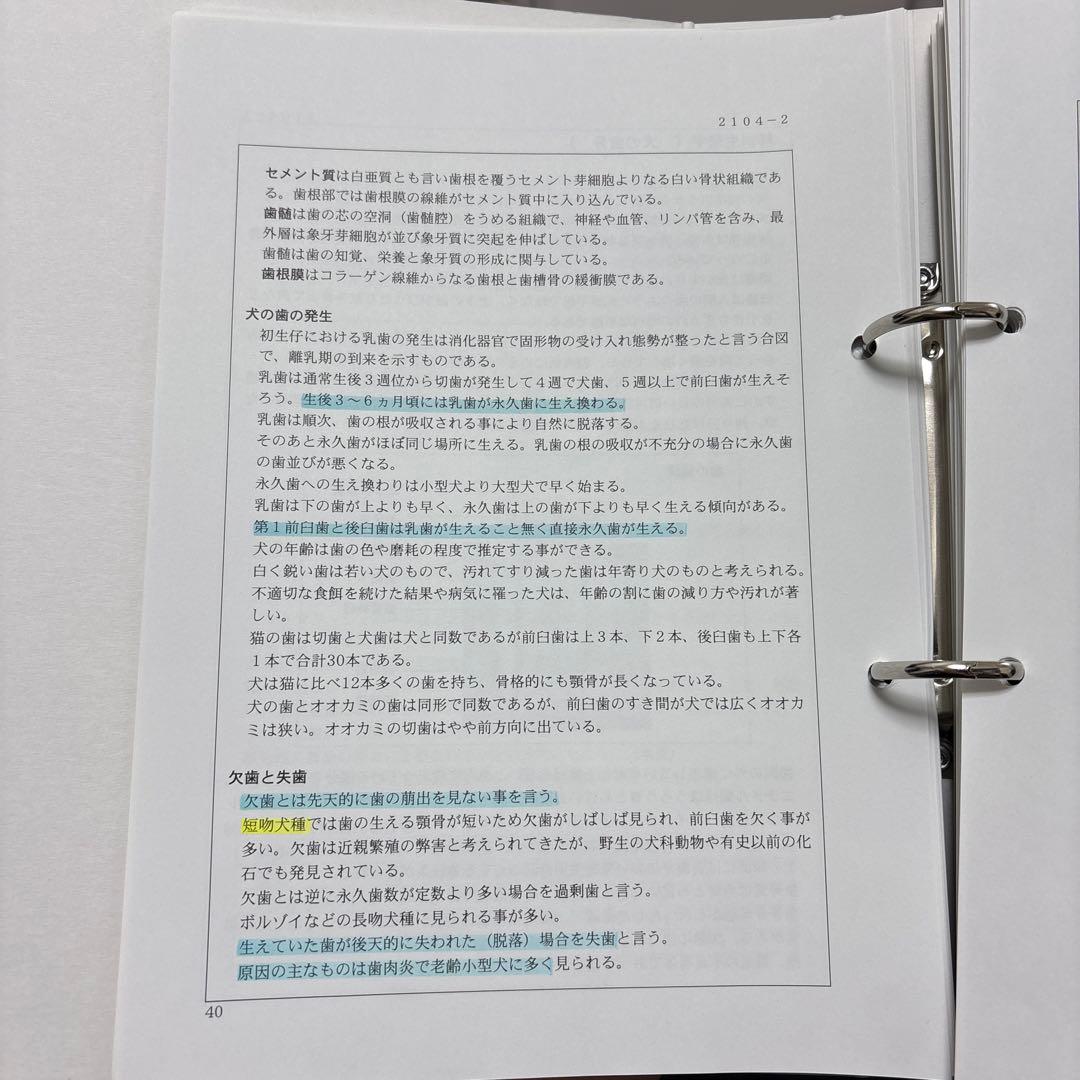 2104-2
セメント質は白亜質とも言い歯根を覆うセメント芽細胞よりなる白い骨状組織であ
る。歯根部では歯根膜の線維がセメント質中に入り込んでいる。
歯髄は歯の芯の空洞（歯髄腔）をうめる組織で、神経や血管、リンパ管を含み、最
外層は象牙芽細胞が並び象牙質に突起を伸ばしている。
歯髄は歯の知覚、栄養と象牙質の形成に関与している。
歯根膜はコラーゲン線維からなる歯根と歯槽骨の緩衝膜である。
犬の歯の発生
初生仔における乳歯の発生は消化器官で固形物の受け入れ態勢が整ったと言う合図
で、離乳期の到来を示すものである。
乳歯は通常生後３週位から切歯が発生して４週で犬歯、５週以上で前臼歯が生えそ
ろう。生後３～６ヵ月頃には乳歯が永久歯に生え換わる。
乳歯は順次、歯の根が吸収される事により自然に脱落する。
そのあと永久歯がほぼ同じ場所に生える。乳歯の根の吸収が不充分の場合に永久歯
の歯並びが悪くなる。
永久歯への生え換わりは小型犬より大型犬で早く始まる。
乳歯は下の歯が上よりも早く、永久歯は上の歯が下よりも早く生える傾向がある。
第１前臼歯と後臼歯は乳歯が生えること無く直接永久歯が生える。
犬の年齢は歯の色や磨耗の程度で推定する事ができる。
白く鋭い歯は若い犬のもので、汚れてすり減った歯は年寄り犬のものと考えられる。
不適切な食餌を続けた結果や病気に罹った犬は、年齢の割に歯の減り方や汚れが著
しい。
猫の歯は切歯と犬歯は犬と同数であるが前臼歯は上３本、下２本、後臼歯も上下各
１本で合計30本である。
犬は猫に比べ12本多くの歯を持ち、骨格的にも顎骨が長くなっている。
犬の歯とオオカミの歯は同形で同数であるが、前臼歯のすき間が犬では広くオオカ
ミは狭い。オオカミの切歯はやや前方向に出ている。
欠歯と失歯
欠歯とは先天的に歯の萠出を見ない事を言う。
短吻犬種では歯の生える顎骨が短いため欠歯がしばしば見られ、前臼歯を欠く事が
多い。欠歯は近親繁殖の弊害と考えられてきたが、野生の犬科動物や有史以前の化
石でも発見されている。
欠歯とは逆に永久歯数が定数より多い場合を過剰歯と言う。
ボルゾイなどの長吻犬種に見られる事が多い。
生えていた歯が後天的に失われた（脱落）場合を失歯と言う。
原因の主なものは歯肉炎で老齢小型犬に多く見られる。
40